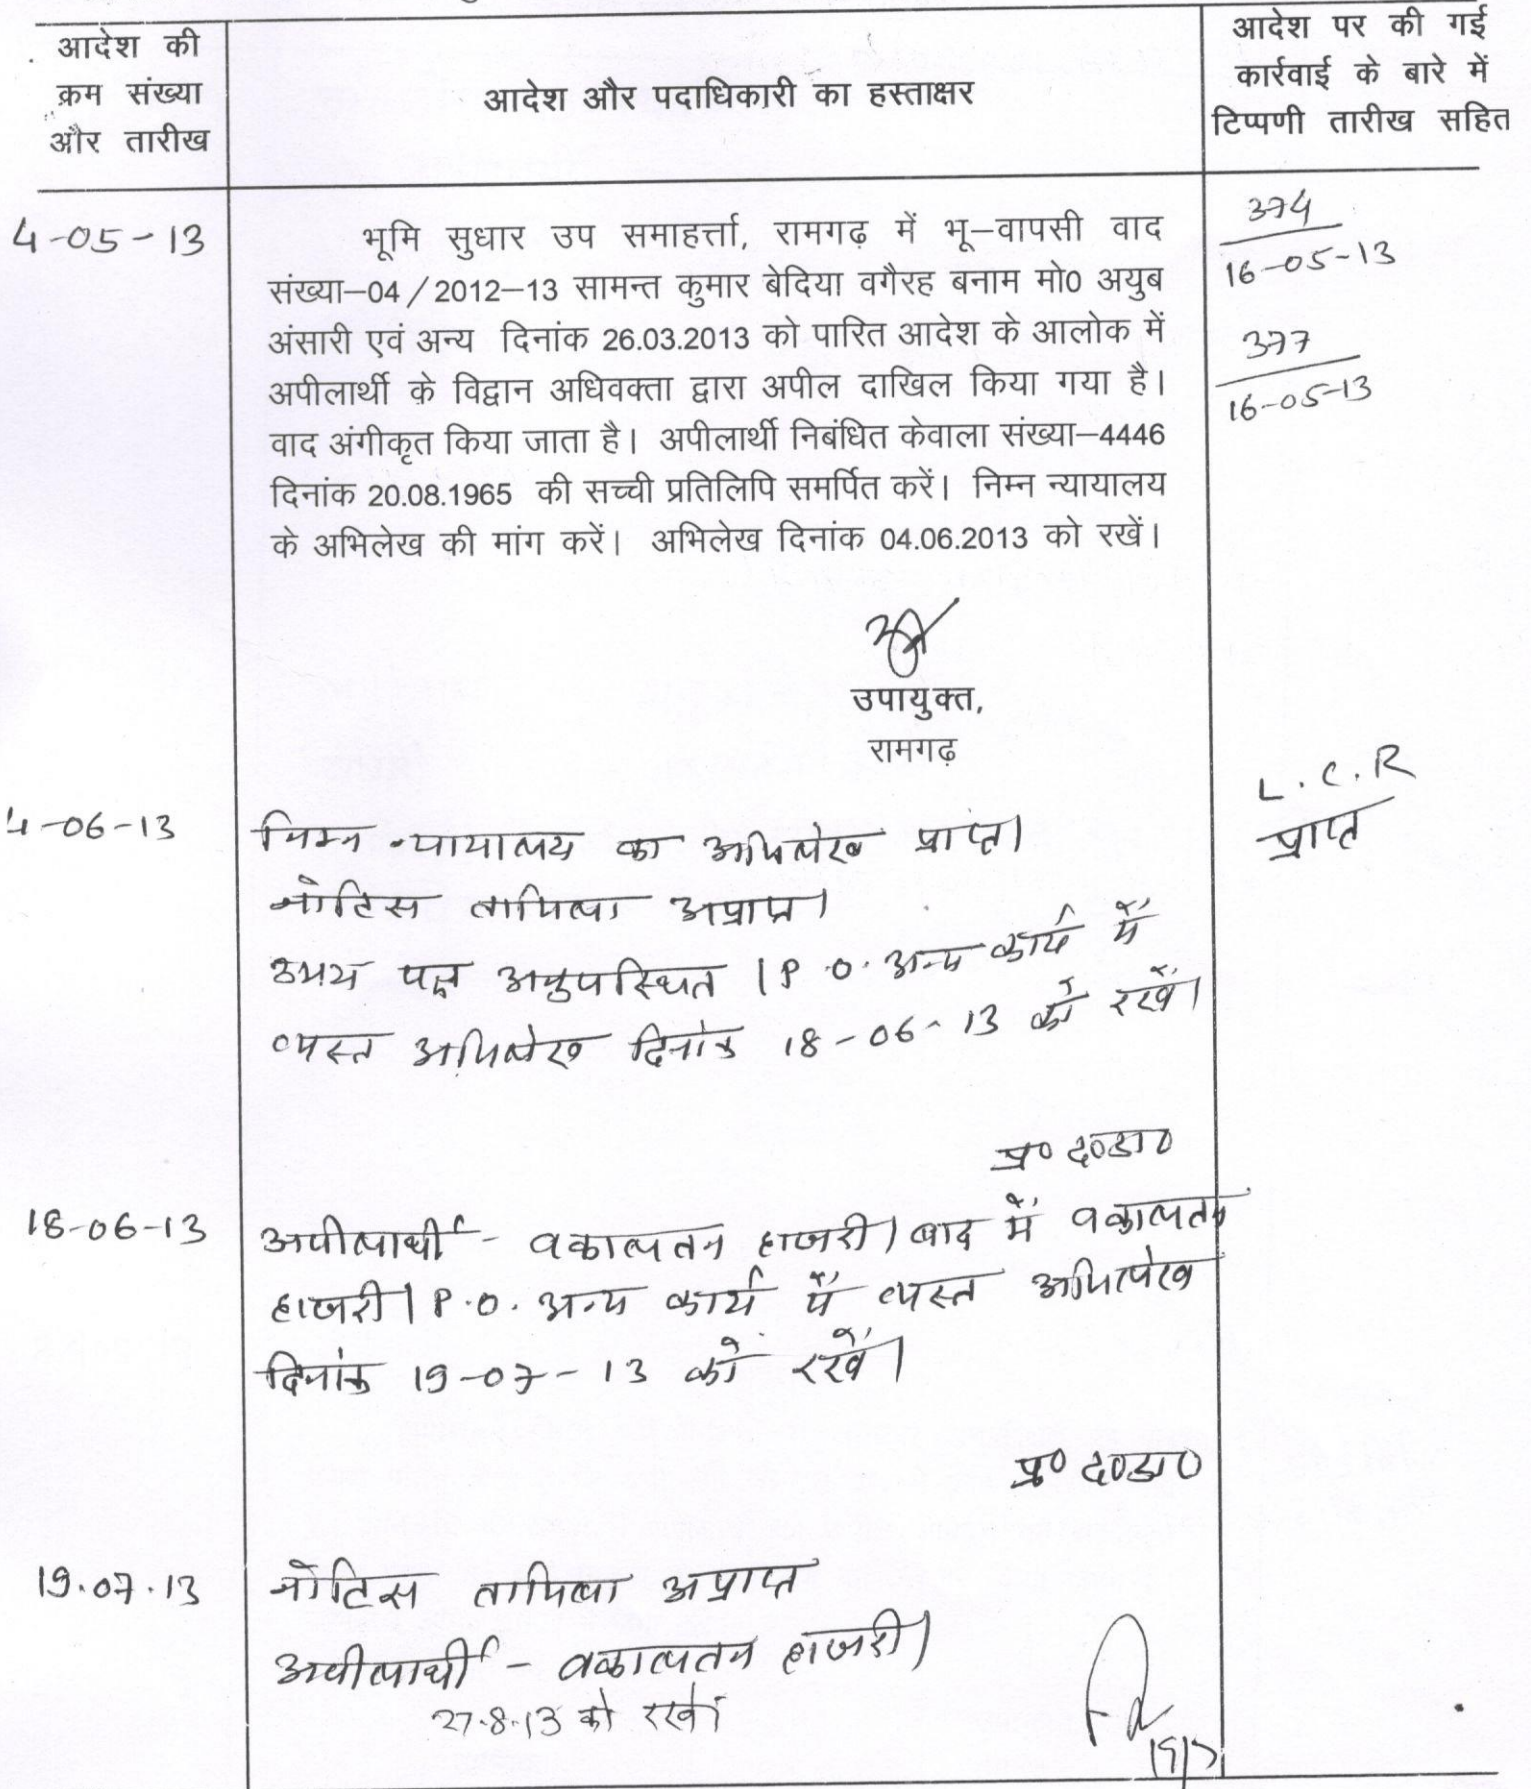 आदेश की
क्रम संख्या
और तारीख
आदेश और पदाधिकारी का हस्ताक्षर
आदेश पर की गई
कार्रवाई के बारे में
टिप्पणी तारीख सहित
4-05-13
भूमि सुधार उप समाहर्त्ता, रामगढ़ में भू–वापसी वाद
संख्या–04/2012–13 सामन्त कुमार बेदिया वगैरह बनाम मो0 अयुब
अंसारी एवं अन्य दिनांक 26.03.2013 को पारित आदेश के आलोक में
अपीलार्थी के विद्वान अधिवक्ता द्वारा अपील दाखिल किया गया है।
वाद अंगीकृत किया जाता है। अपीलार्थी निबंधित केवाला संख्या–4446
दिनांक 20.08.1965 की सच्ची प्रतिलिपि समर्पित करें। निम्न न्यायालय
के अभिलेख की मांग करें। अभिलेख दिनांक 04.06.2013 को रखें।
374
16-05-13
377
16-05-13
उपायुक्त,
रामगढ़
4-06-13
निम्न न्यायालय का अभिलेख प्राप्त।
नोटिस तामिला अप्राप्त।
उभय पक्ष अनुपस्थित। P.O. अन्य कार्य में
व्यस्त अभिलेख दिनांक 18-06-13 को रखें।
L.C.R
प्राप्त
प्र० द०डा०
18-06-13
अपीलार्थी - वकालतन हाजरी। बाद में वकालतन
हाजरी। P.O. अन्य कार्य में व्यस्त अभिलेख
दिनांक 19-07-13 को रखें।
प्र० द०डा०
19.07.13
नोटिस तामिला अप्राप्त
अपीलार्थी - वकालतन हाजरी।
27.8.13 को रखें।
19/7